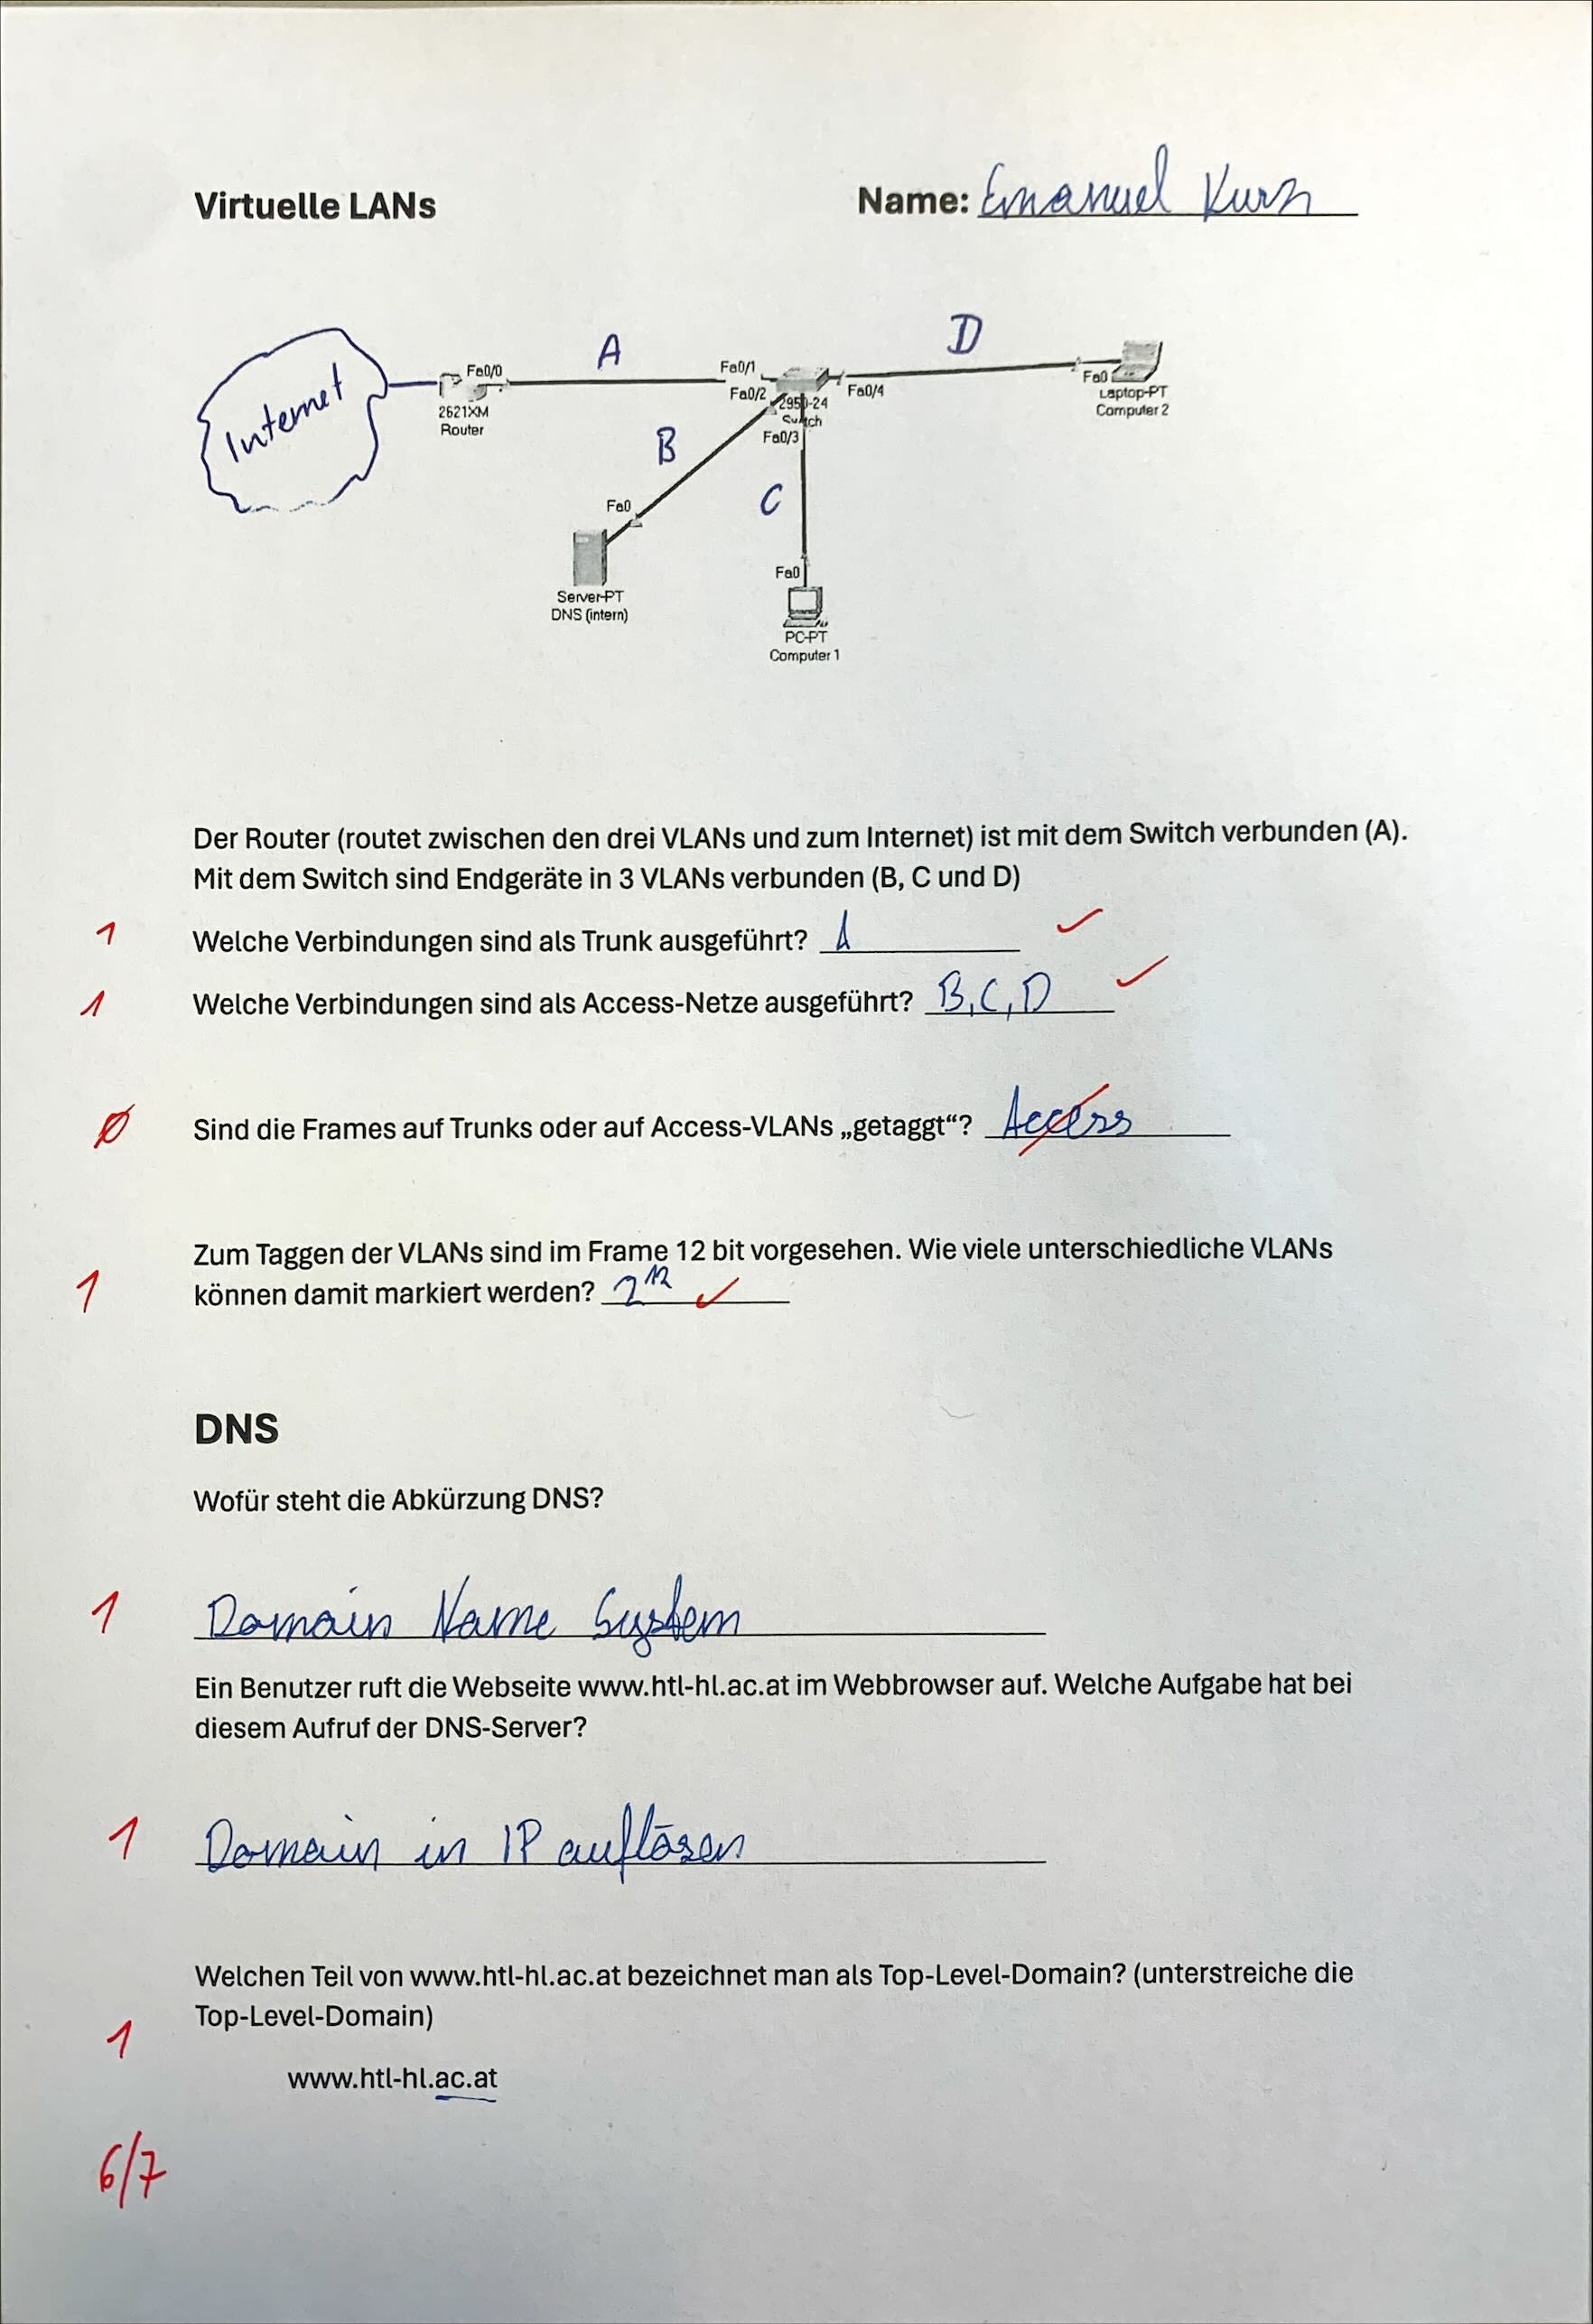 Virtuelle LANs
Name: Emanuel Kurz
Internet
A
B
C
D
Fa0/0
2621XM
Router
Fa0/1
Fa0/2
2950-24
Switch
Fa0/3
Fa0/4
Fa0
Laptop-PT
Computer 2
Fa0
Server-PT
DNS (intern)
Fa0
PC-PT
Computer 1
Der Router (routet zwischen den drei VLANs und zum Internet) ist mit dem Switch verbunden (A).
Mit dem Switch sind Endgeräte in 3 VLANs verbunden (B, C und D)
1 Welche Verbindungen sind als Trunk ausgeführt? A
1 Welche Verbindungen sind als Access-Netze ausgeführt? B, C, D
0 Sind die Frames auf Trunks oder auf Access-VLANs „getaggt“? Access
Zum Taggen der VLANs sind im Frame 12 bit vorgesehen. Wie viele unterschiedliche VLANs
1 können damit markiert werden? 2¹²
DNS
Wofür steht die Abkürzung DNS?
1 Domain Name System
Ein Benutzer ruft die Webseite www.htl-hl.ac.at im Webbrowser auf. Welche Aufgabe hat bei
diesem Aufruf der DNS-Server?
1 Domain in IP auflösen
Welchen Teil von www.htl-hl.ac.at bezeichnet man als Top-Level-Domain? (unterstreiche die
Top-Level-Domain)
1
www.htl-hl.ac.at
6/7